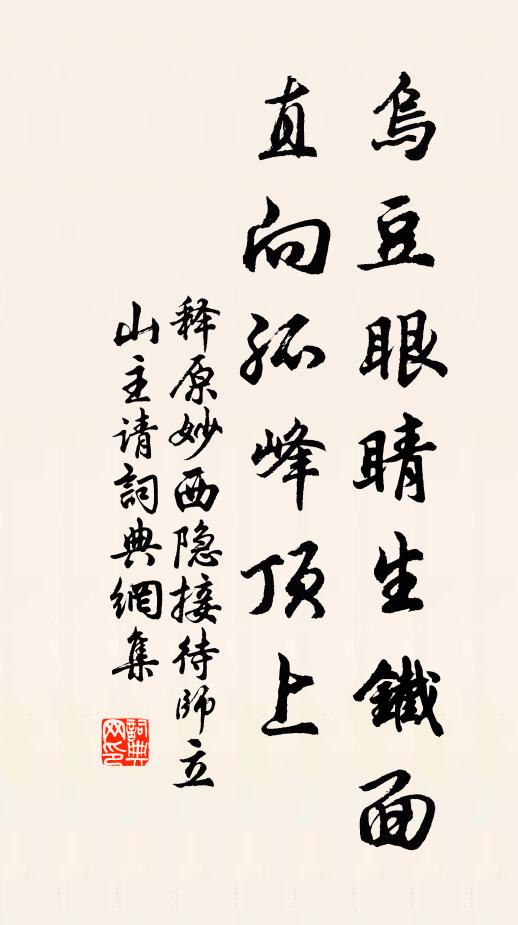 烏豆眼睛生鐵面
直向孤峰頂上
释原妙西隐接待師立
山主请詞典網集
詞典
网印